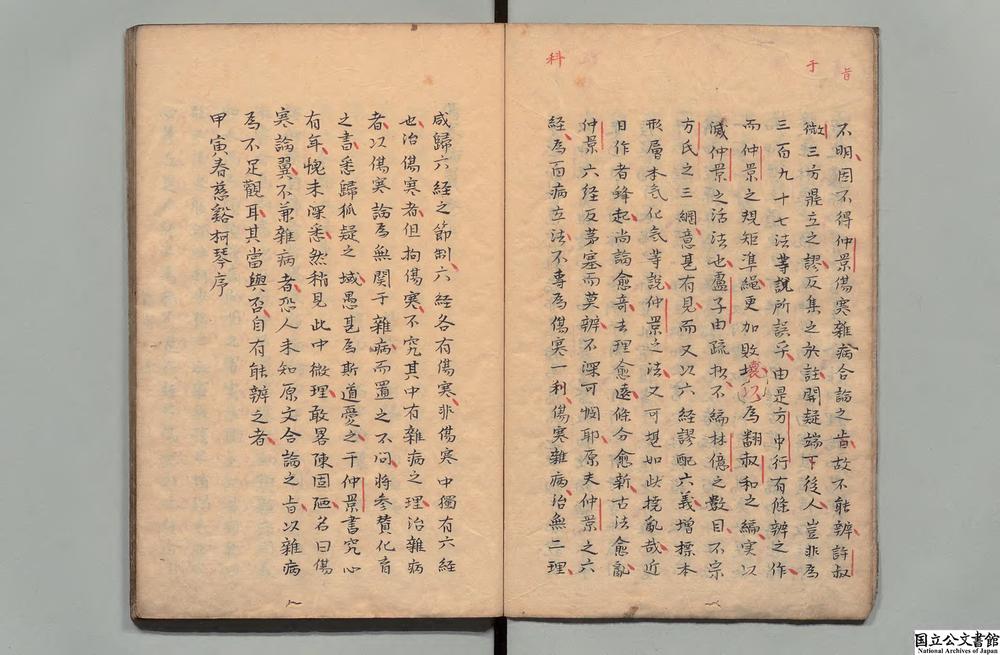 旨
于
科
不明因不得仲景傷寒雜病合論之旨故不能辨許叔
微三方鼎立之謬反集之於註開疑端下後人豈非為
三百九十七法等說所誤乎由是方中行有條辨之作
而仲景之規矩準繩更加敗壞名為翻叔和之編実以
滅仲景之活法也盧子由疏抄不編林億之数目不宗
方氏之三綱意甚有見而又以六經謬配六義增標本
形層本氣化氣等說仲景之法又可堪如此撓亂哉近
日作者鋒起尚論愈奇去理愈遠條分愈新古法愈亂
仲景六經反茅塞而莫辨不深可憫耶原夫仲景之六
經為百病立法不專為傷寒一利傷寒雜病治無二理
咸歸六經之節制六經各有傷寒非傷寒中獨有六經
也治傷寒者但拘傷寒不究其中有雜病之理治雜病
者以傷寒論為無関于雜病而置之不问將參賛化育
之書悉歸狐疑之域愚甚為斯道憂之于仲景書究心
有年愧未深悉然稍見此中微理敢畧陳固陋名曰傷
寒論翼不兼雜病者恐人未知原文合論之旨以雜病
為不足觀耳其當與否自有能辨之者
甲寅春慈谿柯琴序
国立公文書館
National Archives of Japan